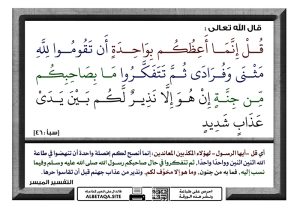 قال الله تعالى :
قُلْ إِنَّمَا أَعِظُكُم بِوَاحِدَةٍ أَن تَقُومُوا لِلَّهِ
مَثْنَى وَفُرَادَى ثُمَّ تَتَفَكَّرُوا مَا بِصَاحِبِكُم
مِّن جِنَّةٍ إِنْ هُوَ إِلَّا نَذِيرٌ لَّكُم بَيْنَ يَدَيْ
عَذَابٍ شَدِيدٍ
[سبأ : ٤٦]
أي قل -أيها الرسول- لهؤلاء المكذبين المعاندين: إنما أنصح لكم بخصلة واحدة أن تنهضوا في طاعة
الله اثنين اثنين وواحدًا واحدًا، ثم تتفكروا في حال صاحبكم رسول الله صلى الله عليه وسلم وفيما
نسب إليه، فما به من جنون، وما هو إلا مخوف لكم، ونذير من عذاب جهنم قبل أن تقاسوا حرها.
التفسير الميسر
ALBETAQA.SITE
احرص على طباعة
ونشر هذه الورقة